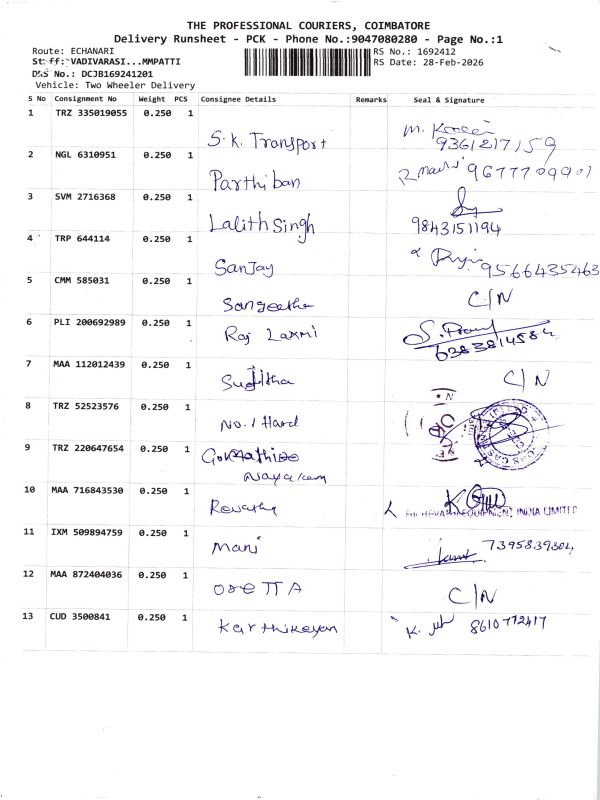 THE PROFESSIONAL COURIERS, COIMBATORE
Delivery Runsheet - PCK - Phone No.:9047080280 - Page No.:1
Route: ECHANARI
RS No.: 1692412
Staff: VADIVARASI...MMPATTI
RS Date: 28-Feb-2026
D&S No.: DCJB169241201
Vehicle: Two Wheeler Delivery
S No Consignment No Weight PCS Consignee Details Remarks Seal & Signature
1 TRZ 335019055 0.250 1 S.K. Transport 9361217159
2 NGL 6310951 0.250 1 Parthiban 9677709901
3 SVM 2716368 0.250 1 Lalith Singh 9843151194
4 TRP 644114 0.250 1 Sanjay 9566435463
5 CMM 585031 0.250 1 Sangeetha C/N
6 PLI 200692989 0.250 1 Raj Laxmi 6383814584
7 MAA 112012439 0.250 1 C/N
8 TRZ 52523576 0.250 1 No.1 Hard
9 TRZ 220647654 0.250 1
10 MAA 716843530 0.250 1 Revathy EQUIPMENT INDIA LIMITED
11 IXM 509894759 0.250 1 Mani 7395839304
12 MAA 872404036 0.250 1 C/N
13 CUD 3500841 0.250 1 Karthikeyan 8610772417